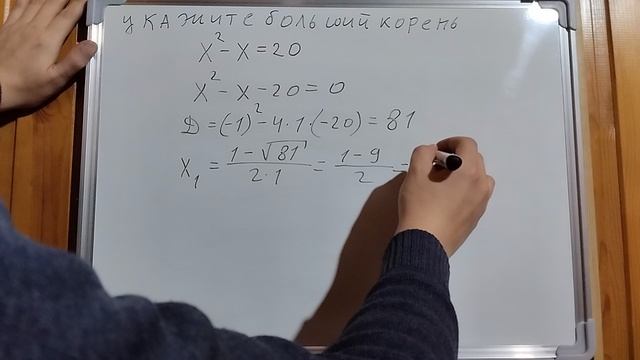 укажите больший корень
x² - x = 20
x² - x - 20 = 0
D = (-1)² - 4 · 1 · (-20) = 81
x₁ = (1 - √81) / (2 · 1) = (1 - 9) / 2 =